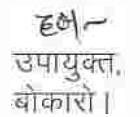 ह०/-
उपायुक्त,
बोकारो।